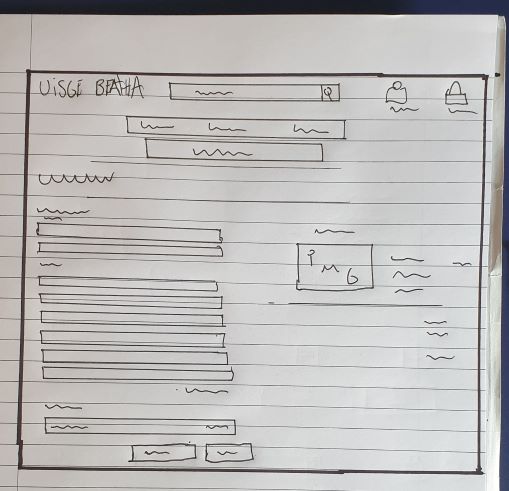 UISGE BEATHA
IMG